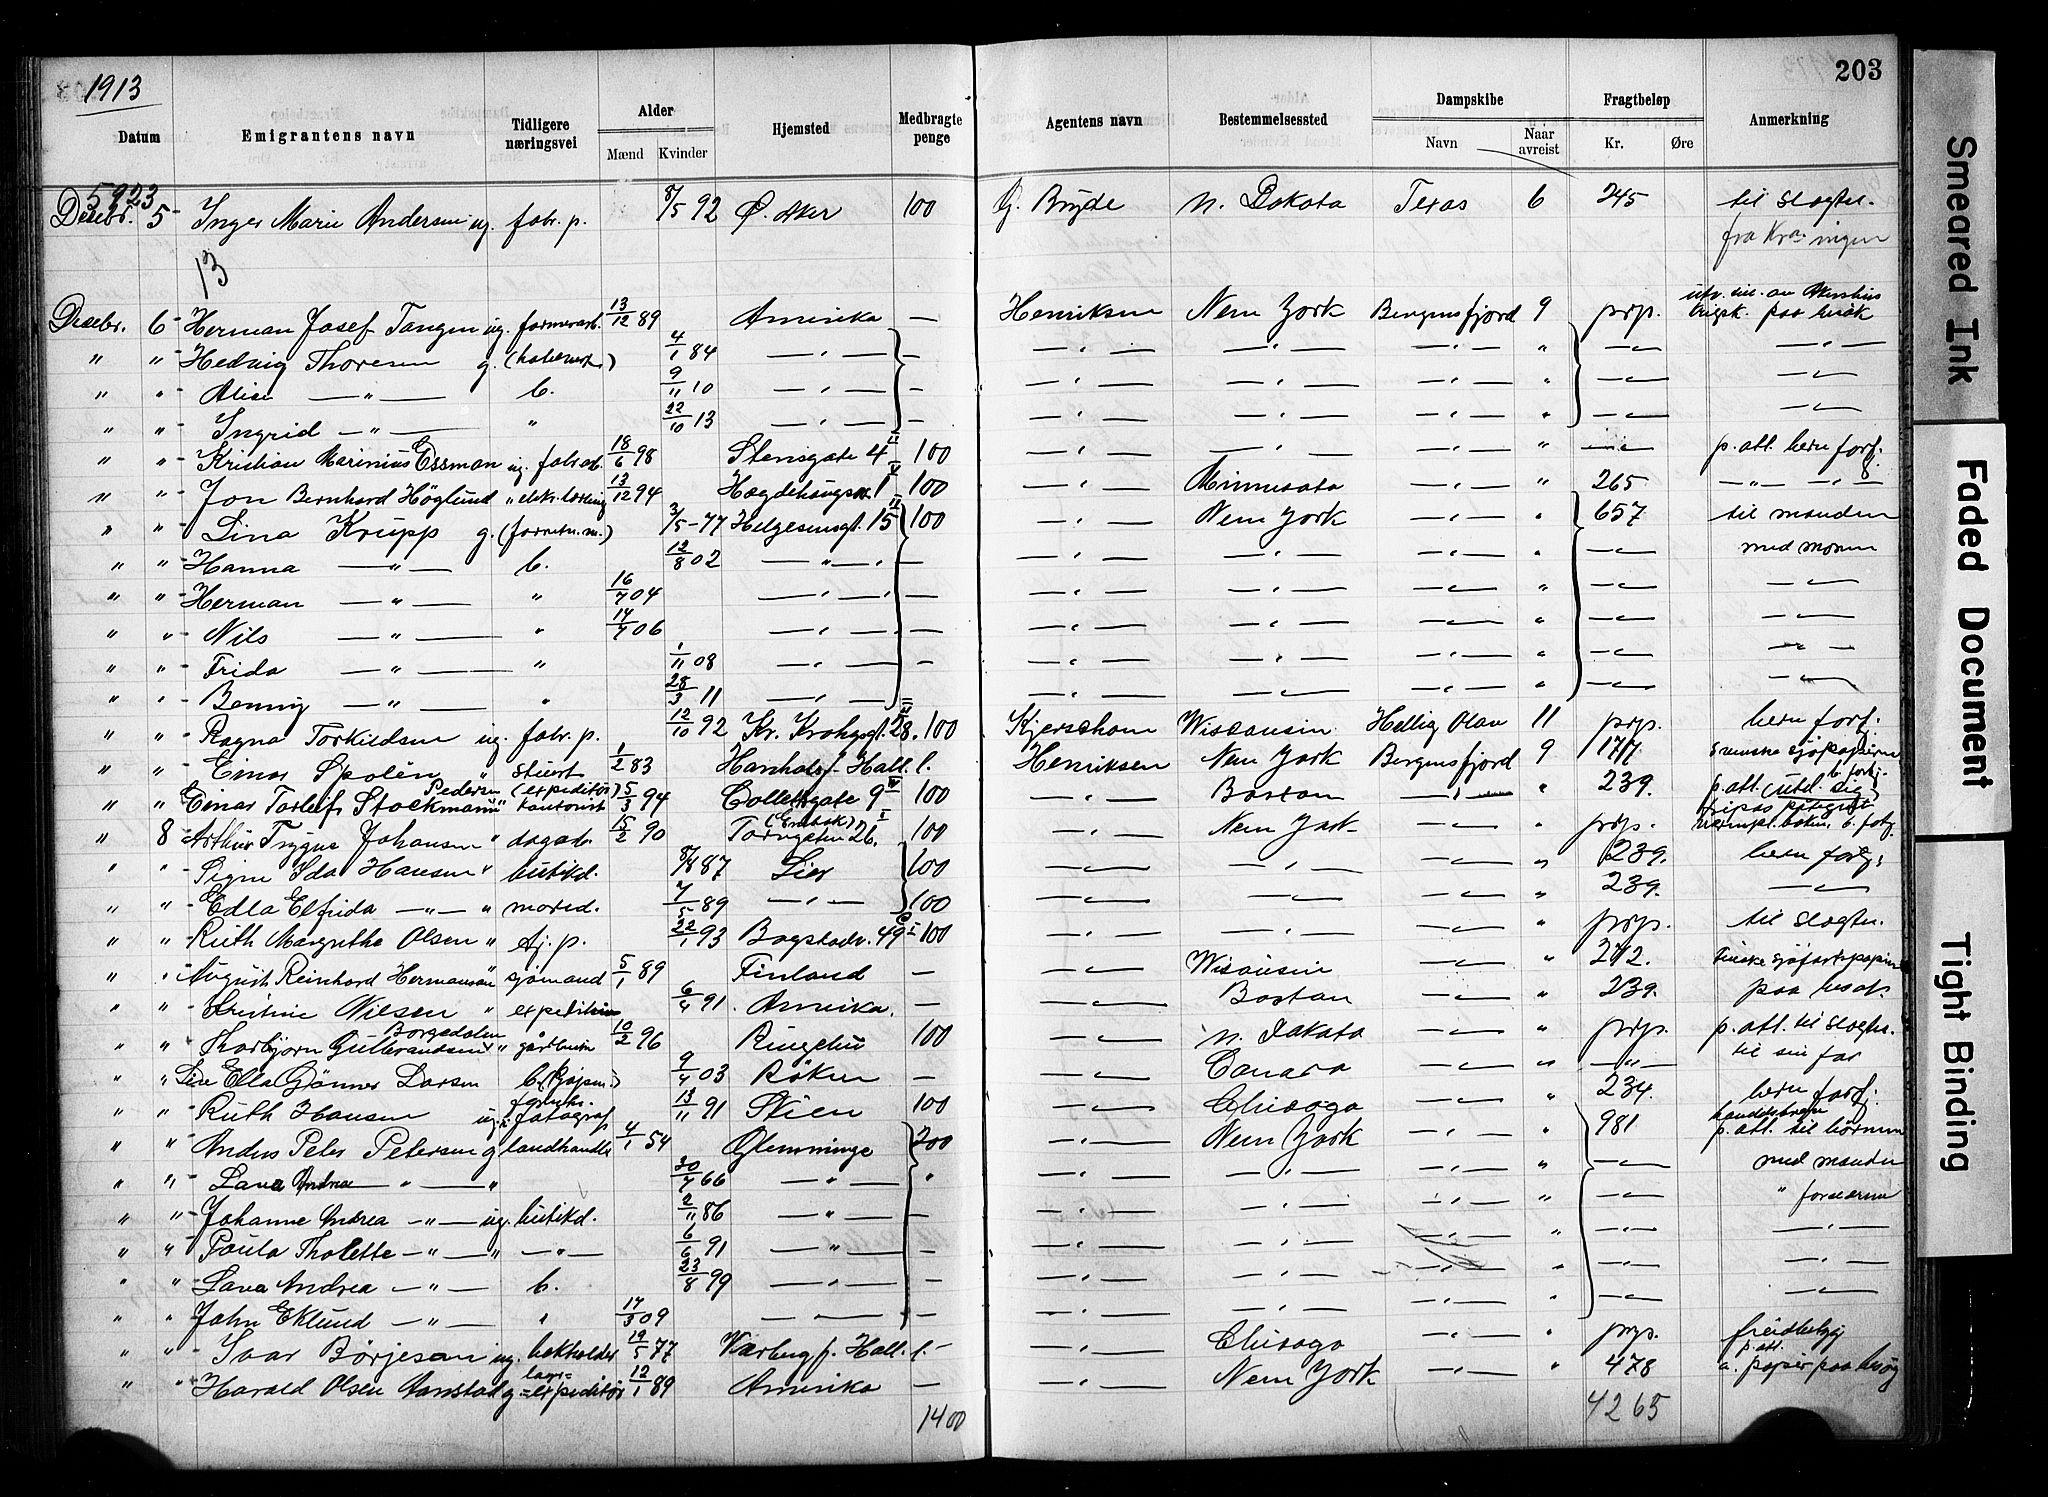 1913
203
Datum Emigrantens navn Tidligere næringsvei Alder Mænd Kvinder Hjemsted Medbragte penge Agentens navn Bestemmelsessted Dampskibe Navn Naar avreist Fragtbeløp Kr. Øre Anmerkning
5923
Desebr. 5 Inger Marie Andersen ug. fabr. p. 8/5 92 Ø. Aker 100 G. Bryde N. Dakota Texas 6 245 til slogtn.
fra Kra. ingen
13
Desebr. 6 Herman Josef Tangen ug. farmerarb. 13/12 89 Amerika — Henriksen New York Bergensfjord 9 prp. paa besøk
" " Hedvig Thoresen g. 4/1 84 —"— — —"— —"— —"— " —"— —"—
" " Alise —"— b. 9/11 10 —"— — —"— —"— —"— " —"— —"—
" " Ingrid —"— " 22/10 13 —"— — —"— —"— —"— " —"— —"—
" " Kristian Marinius Essman ug. fabr.arb. 18/6 98 Stensgate 4 II 100 —"— —"— —"— " —"— p. att. bern forf.
" " Jon Bernhard Höglund " elektr. lærling 13/12 94 Hægdehaugsv. 1 100 —"— Minnesota —"— " 265 —"— —"—
" " Lina Krupp g. (forretn. m.) 3/5 - 77 Helgesensgt. 15 100 —"— New York —"— " 657 til manden
" " Hanna —"— b. 12/8 02 —"— — —"— —"— —"— " —"— med moren
" " Herman —"— " 16/7 04 —"— — —"— —"— —"— " —"— —"—
" " Nils —"— " 14/7 06 —"— — —"— —"— —"— " —"— —"—
" " Frida —"— " 1/11 08 —"— — —"— —"— —"— " —"— —"—
" " Benny —"— " 28/3 11 —"— — —"— —"— —"— " —"— —"—
" " Ragna Torkildsen ug. fabr. p. 12/10 92 Kr. Krohgsgt. 28. 100 Kjerschow Wisconsin Hellig Olav 11 prp. bern forf.
" " Einar Spolén " stuert 1/2 83 Harshals f. Hall. l. Henriksen New York Bergensfjord 9 177. svenske sjøpapirer
" " Einar Torleif Stockmann Pedersen " (expeditør) kontorist 5/3 94 Collettsgate 9 IV 100 Boston —"— " 239. p. att.
" 8 Arthur Trygve Johansen " dagarb. 15/2 90 Torvgaten 26. I 100 New York prp.
" " Signe Ida Hansen " butikd. 8/8 87 Lier 100 —"— —"— —"— " 239. bern forf.
" " Edla Elfrida —"— " mored. 7/5 89 —"— 100 —"— —"— —"— " 239. —"—
" " Ruth Margrethe Olsen " tj. p. 22/1 93 Bogstadv. 49 I 100 —"— —"— —"— " prp. til slogtn.
" " August Reinhard Hermansson " sjømand 5/1 89 Finland — —"— Wisconsin —"— " 272. finske sjøfartspapirer
" " Kristine Nilsen " expeditrice 6/4 91. Amerika. — —"— Boston —"— " 239. paa besøk.
" " Torbjørn Gulbrandsen Borgedalen " gårdbruker 10/2 96 Ringebu 100 —"— N. Dakota —"— " prp. p. att. til slogtn.
" " Lise Ella Gönner Larsen b. 9/4 03 Röken — —"— Canada —"— " —"— til sin far
" " Ruth Hansen ug. fotograf 13/11 91 Skien 100 —"— Chicago —"— " 234. bern forf.
" " Anders Peter Petersen g landhandler 4/1 54 Glemminge 200 —"— New York —"— " 981 p. att. til børnene
" " Lava Andrea —"— " 30/7 66 —"— " —"— —"— —"— " —"— med manden
" " Johanne Andrea —"— ug. butikd. 2/11 86 —"— — —"— —"— —"— " —"— " foreldrene
" " Paula Tholette —"— " —"— 6/6 91 —"— — —"— —"— —"— " —"— —"—
" " Lava Andrea —"— b. 23/8 99 —"— — —"— —"— —"— " —"— —"—
" " John Eklund —"— " 17/3 09 —"— — —"— —"— —"— " —"— —"—
" " Ivar Börjeson ug. bokholder 19/5 77 Warberg f. Hall. l. — —"— Chicago —"— " prp.
" " Harald Olsen Aanstad g = expeditör 12/1 89 Amerika — —"— New York —"— " 478 a. papir paa besøg
1400
4265
Smeared Ink
Faded Document
Tight Binding